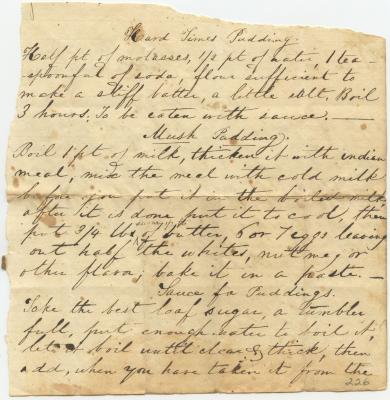 Hard Times Pudding.
Half pt of molasses, 1/2 pt of water, 1 tea-
spoonful of soda, flour sufficient to
make a stiff batter, a little salt. Boil
3 hours. To be eaten with sauce. —
Mush Pudding.
Boil 1 pt of milk, thicken it with indian
meal, mix the meal with cold milk
before you put it in the boiled milk,
after it is done put it to cool, then
put 3/4 lbs of butter, 6 or 7 eggs leaving
out half the whites, nutmeg or
other flavor; bake it in a paste. —
Sauce for Puddings.
Take the best loaf sugar, a tumbler
full, put enough water to boil it,
let it boil until clear & thick, then
add, when you have taken it from the
226